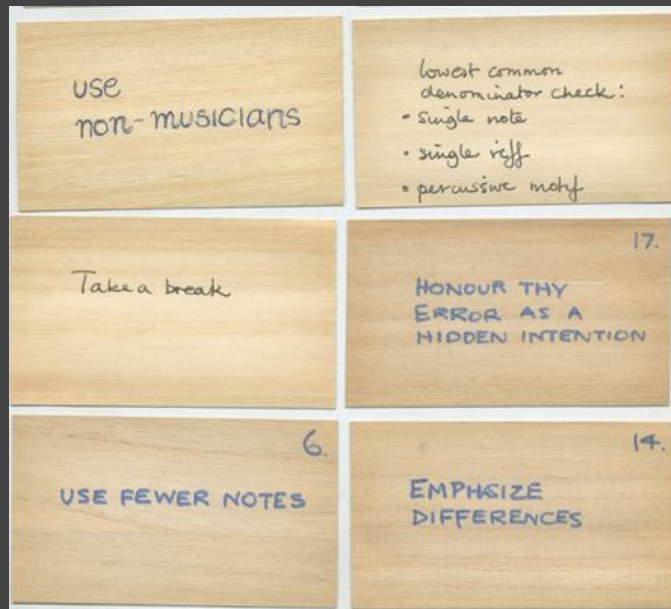 use
non-musicians
lowest common
denominator check:
• single note
• single riff
• percussive motif
Take a break
17.
HONOUR THY
ERROR AS A
HIDDEN INTENTION
6.
USE FEWER NOTES
14.
EMPHASIZE
DIFFERENCES